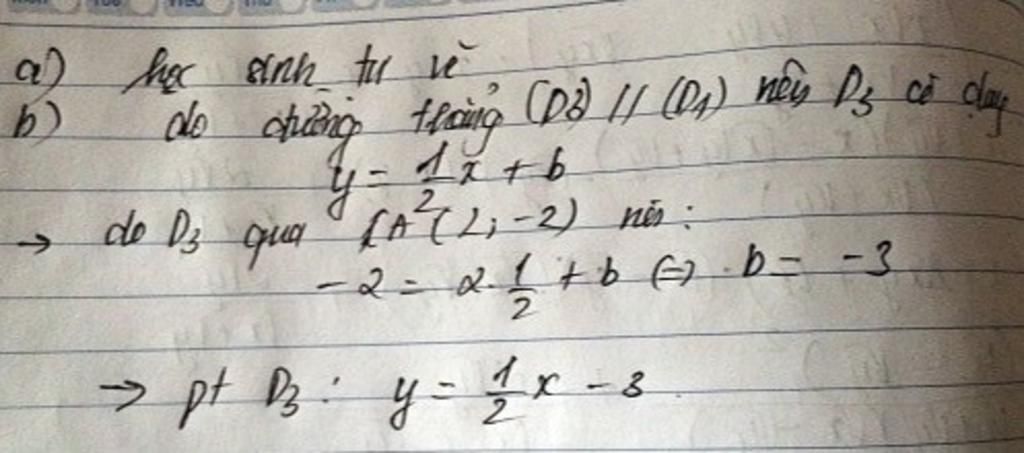 a) học sinh tự vẽ
b) do đường thẳng (D3) // (D1) nên D3 có dạng
y = 1/2 x + b
→ do D3 qua A (2; -2) nên:
-2 = 2. 1/2 + b (=) b = -3
→ pt D3: y = 1/2 x - 3